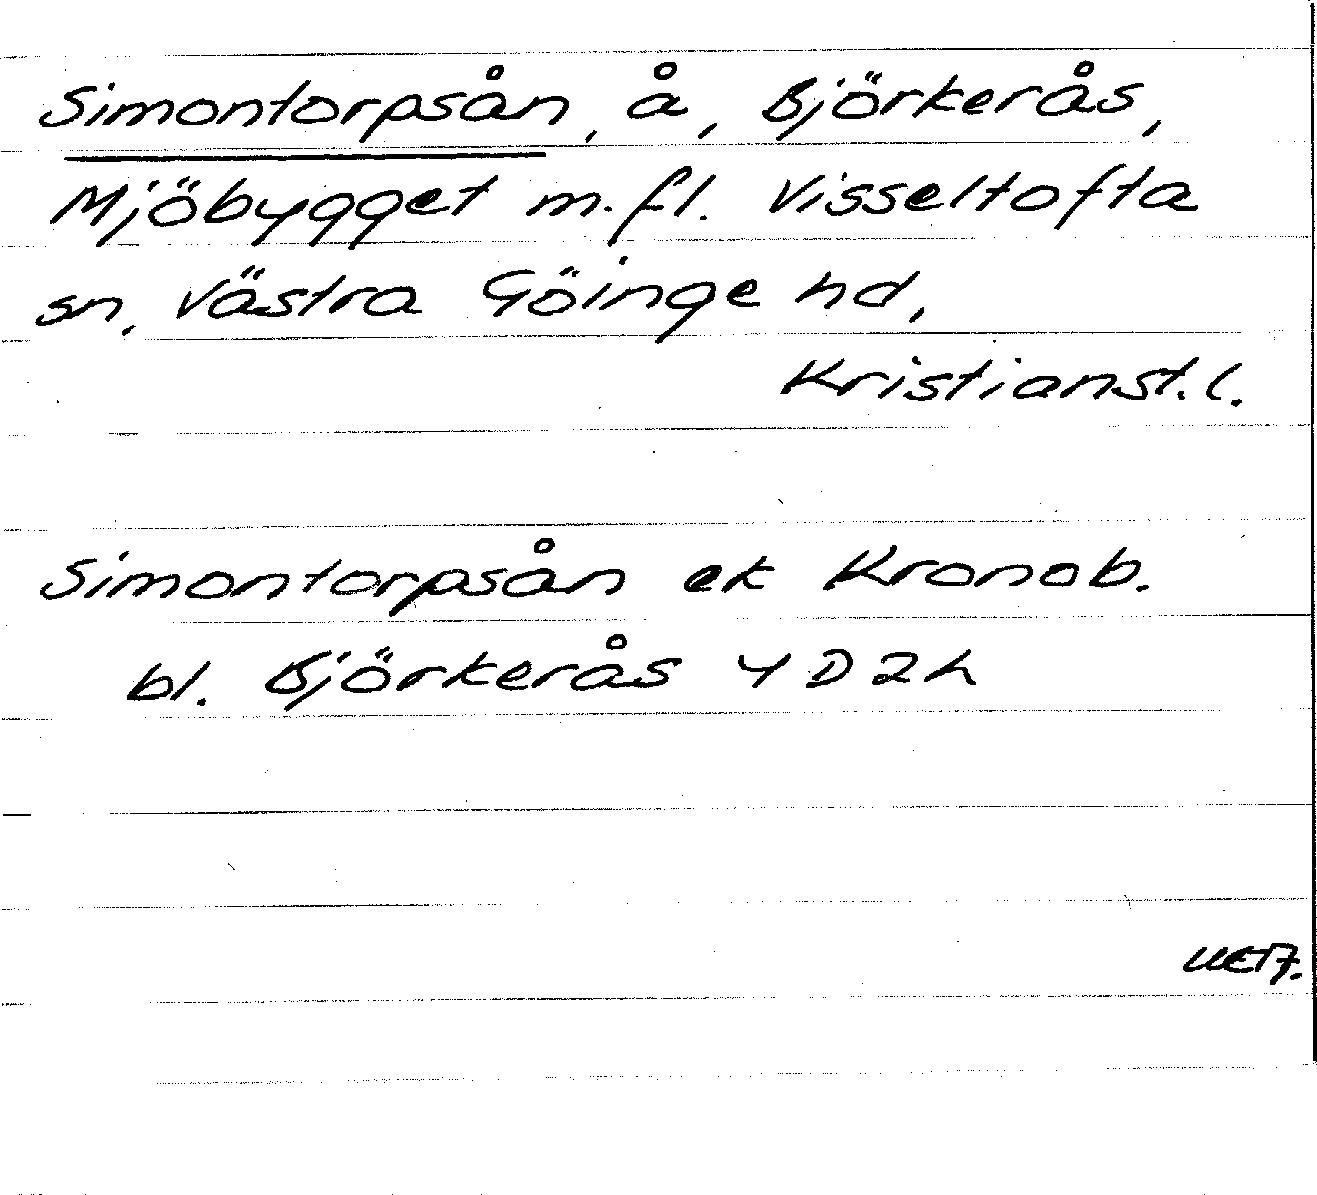 Simontorpsån, å, Björkerås,
Mjöbygget m.fl. Visseltofta
sn, Västra Göinge hd,
Kristianst. l.
Simontorpsån ek Kronob.
bl. Björkerås 4D2h